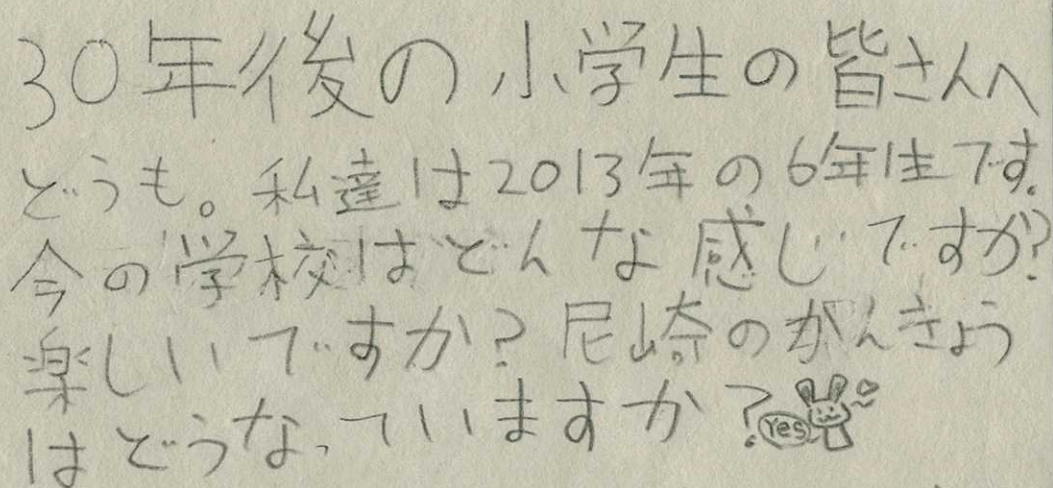 30年後の小学生の皆さんへ
どうも。私達は2013年の6年生です。
今の学校はどんな感じですか?
楽しいですか?尼崎のかんきょう
はどうなっていますか?Yes